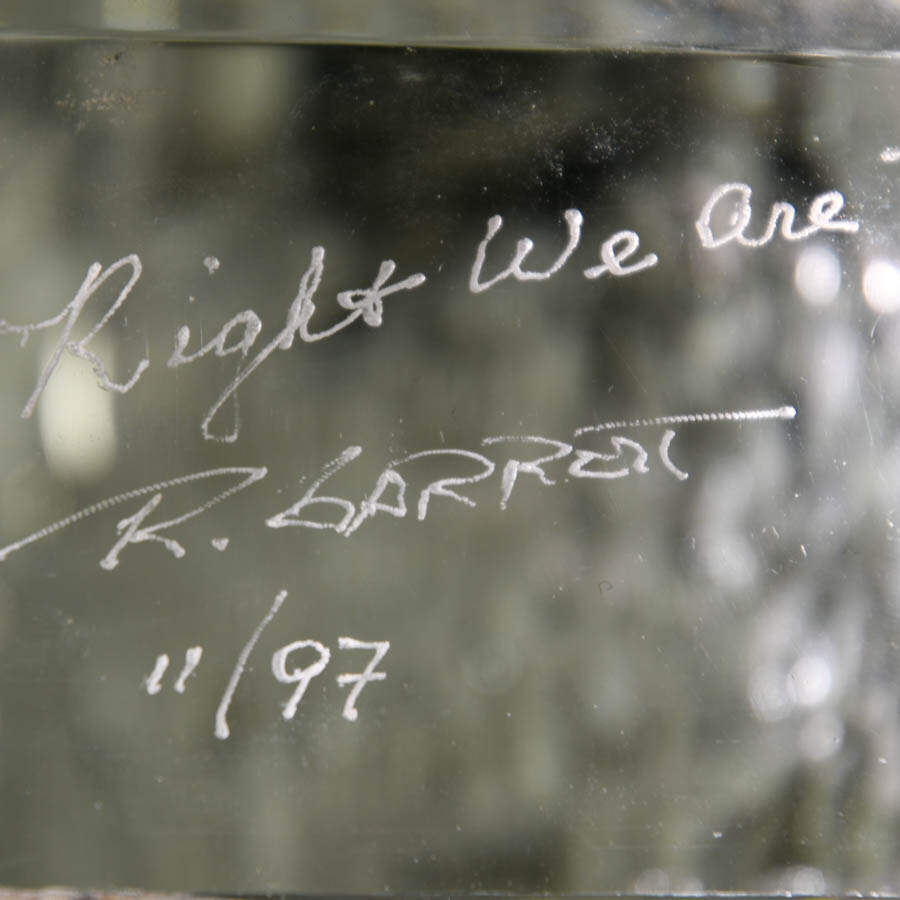 Right We Are
R. GARRETT
11/97